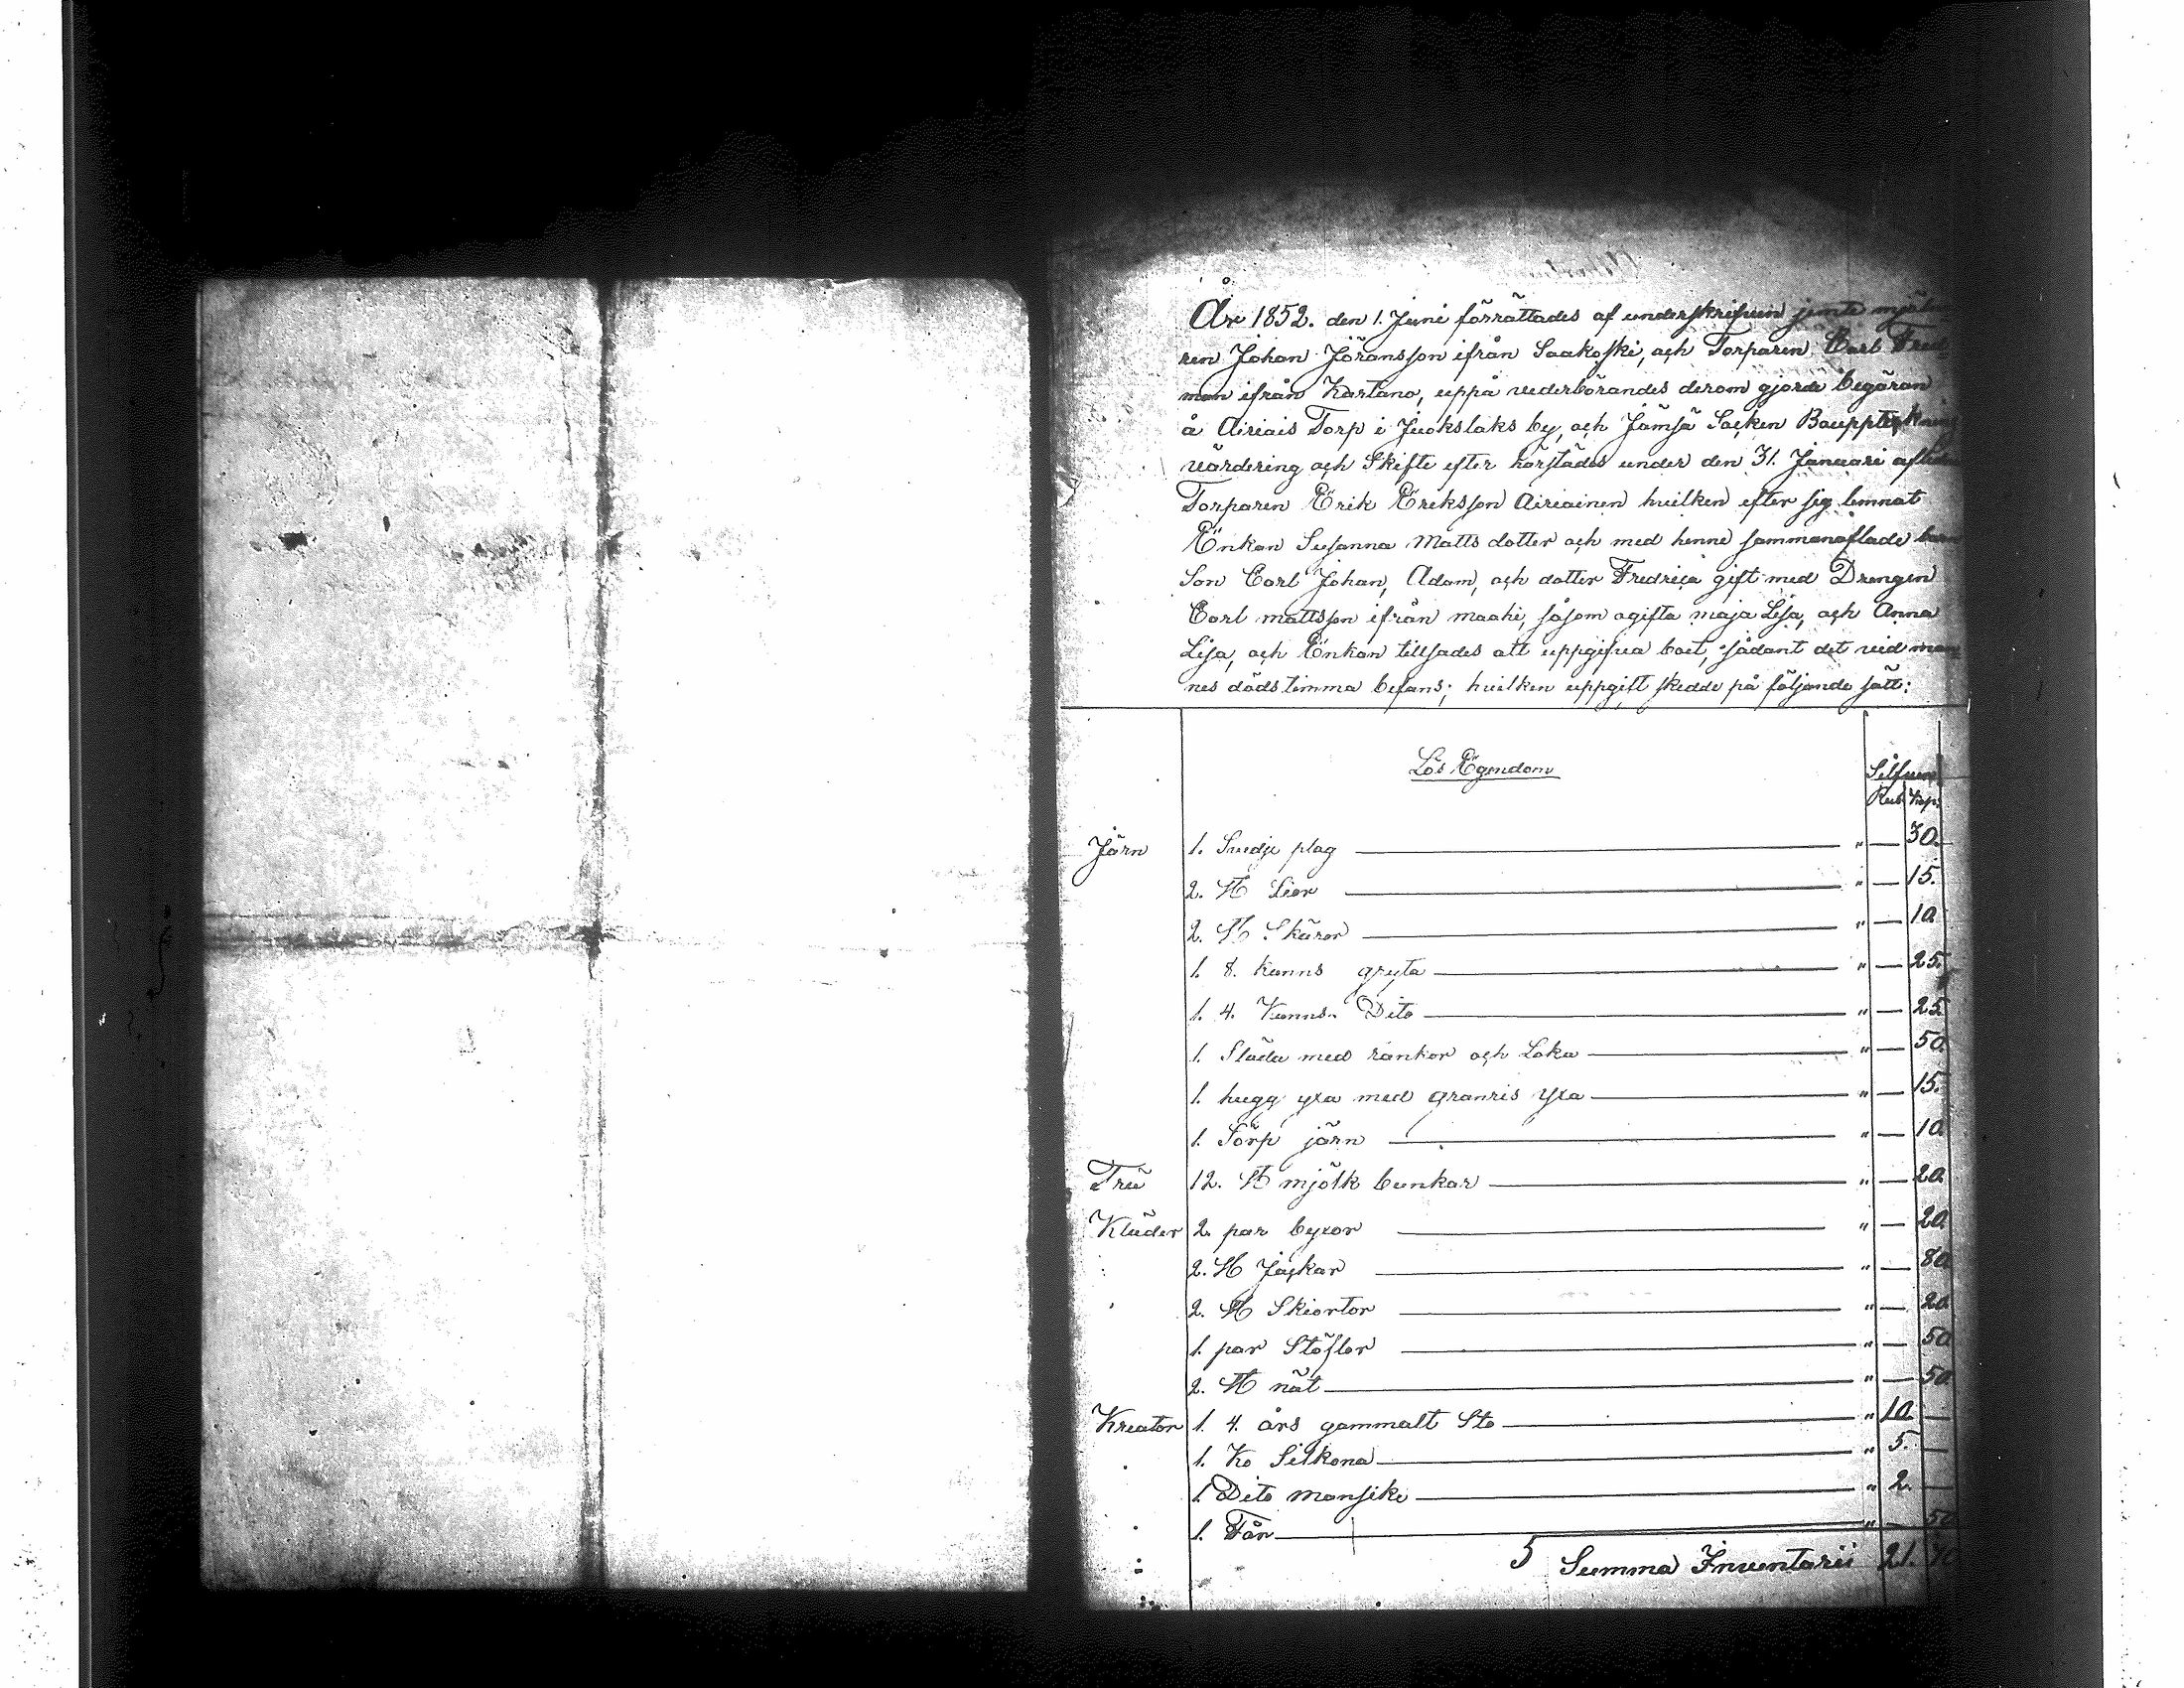 År 1852. den 1. Juni förrättades af underskrifven jemte mjöl
ren Johan Jöransson ifrån Saakoski, och Torparen Carl Fred
man ifrån Kartano, uppå vederbörandes derom gjorde begäran
å Airiais Torp i Juokslaks by, och Jämsä Socken Bouppteckning
värdering och Skifte efter härstädes under den 31. Januari afledne
Torparen Erik Eriksson Airiainen hvilken efter sig lemnat
Enkan Susanna Matts dotter och med henne sammanaflade barn
Son Carl Johan, Adam, och dotter Fredrica gift med Drengen
Carl mattsson ifrån maahi, såsom ogifta maja Lisa, och Anna
Lisa, och Enkan tillsades att uppgifva boet, sådant det vid man
nes dödstimma befans; hvilken uppgift skedde på följande sätt:
Lös Egendom
Silfver
Rub. Kop.
Järn 1. Smidje plag " — 30.
2. St Liar " — 15.
2. St Skäror " — 10
1. 8. kanns gryta " — 25.
1. 4. Kanns Dito " — 25.
1. Släda med rankor och Loka " — 50.
1. hugg yxa med granris yxa " — 15.
1. Sörp järn " — 10
Trä 12. St mjölk bunkar " — 20.
Kläder 2. par byxor " — 20
2. St Jackor " — 80
2. St Skiortor " — 20
1. par Stöflor " — 50
2. St nät " — 50
Kreatur 1. 4. års gammalt Sto " 10. —
1. Ko Silkona " 5. —
1. Dito mansike " 2. —
1. Får " — 50
5 Summa Inventarii 21. 70